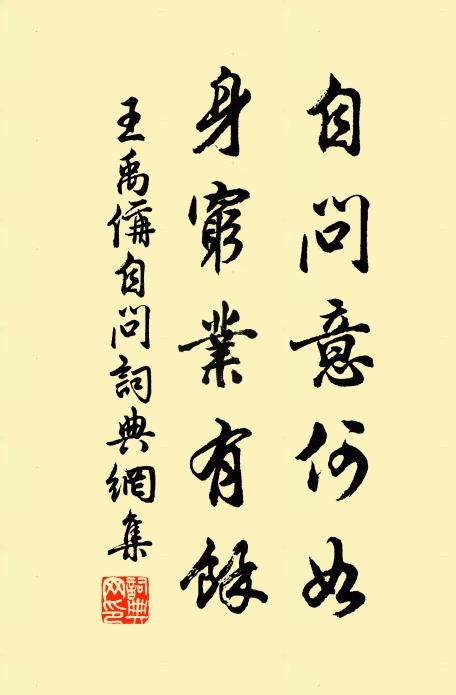 自問意何如
身窮業有餘
王禹偁自問詞典網集
詞典網印